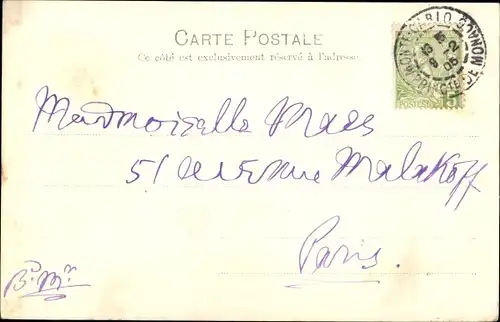 CARTE POSTALE
Ce côté est exclusivement réservé à l'adresse
MONTE-CARLO
POSTES 5
Mademoiselle
51 avenue Malakoff
Paris.